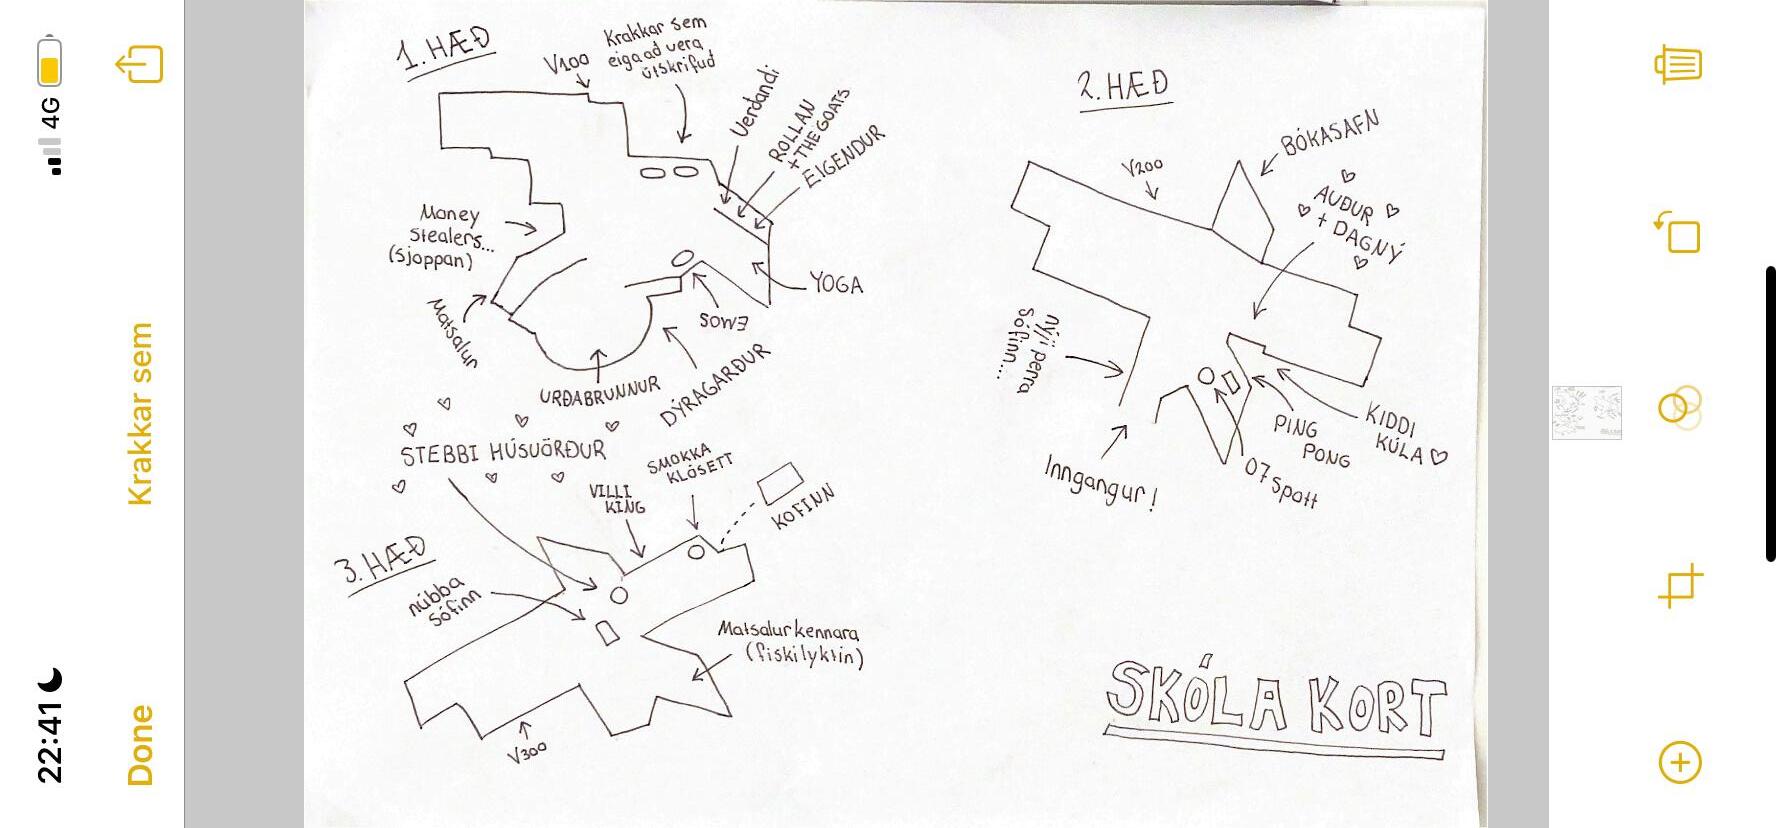 22:41
4G
Done
Krakkar sem
1. HÆÐ
V100
Krakkar sem
eiga að vera
útskrifuð
Verðandi
ROLLAN
+ THE GOATS
EIGENDUR
YOGA
Money
Stealers...
(sjoppan)
Matsalur
URÐABRUNNUR
DÝRAGARÐUR
2. HÆÐ
V200
BÓKASAFN
AUÐUR
+ DAGNÝ
nýji perra
sófinn...
Inngangur!
PING
PONG
07 Spott
KIDDI
KÚLA ♡
STEBBI HÚSVÖRÐUR
3. HÆÐ
VILLI
KING
SMOKKA
KLÓSETT
KOFINN
núbba
sófinn
Matsalur kennara
(fiskilyktin)
V300
SKÓLA KORT